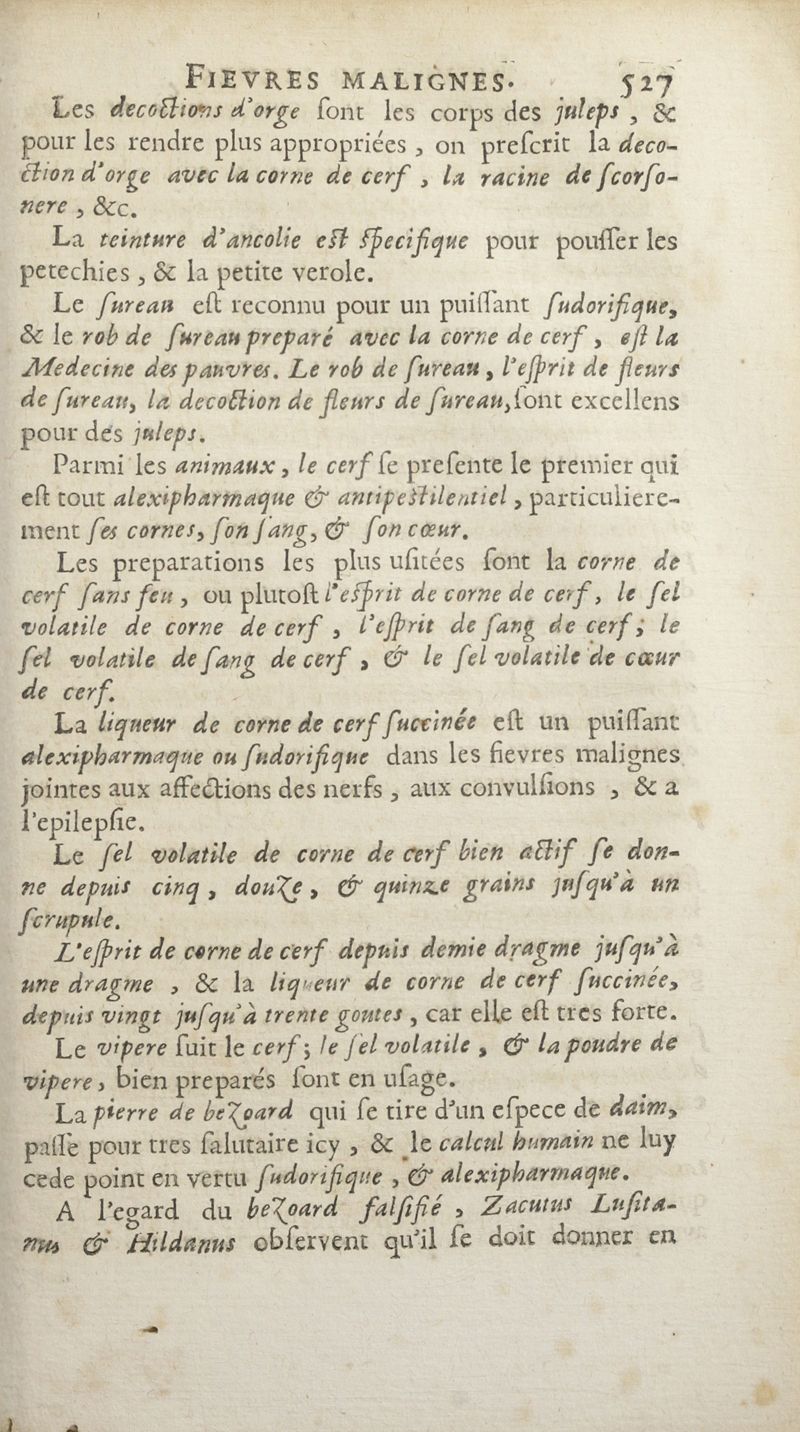 FIEVRES MALIGNES. 527
Les decoctions d'orge ſont les corps des juleps, &
pour les rendre plus appropriées, on preſcrit la deco-
ction d'orge avec la corne de cerf, la racine de ſcorſo-
nere, &c.
La teinture d'ancolie eſt ſpecifique pour pouſſer les
petechies, & la petite verole.
Le ſureau eſt reconnu pour un puiſſant ſudorifique,
& le rob de ſureau preparé avec la corne de cerf, eſt la
Medecine des pauvres. Le rob de ſureau, l'eſprit de fleurs
de ſureau, la decoction de fleurs de ſureau, ſont excellens
pour des juleps.
Parmi les animaux, le cerf ſe preſente le premier qui
eſt tout alexipharmaque & antipeſtilentiel, particuliere-
ment ſes cornes, ſon ſang, & ſon cœur.
Les preparations les plus uſitées ſont la corne de
cerf ſans feu, ou plutoſt l'eſprit de corne de cerf, le ſel
volatile de corne de cerf, l'eſprit de ſang de cerf; le
ſel volatile de ſang de cerf, & le ſel volatile de cœur
de cerf.
La liqueur de corne de cerf ſuccinée eſt un puiſſant
alexipharmaque ou ſudorifique dans les fievres malignes
jointes aux affections des nerfs, aux convulſions, & a
l'epilepſie.
Le ſel volatile de corne de cerf bien actif ſe don-
ne depuis cinq, douze, & quinze grains juſqu'à un
ſcrupule.
L'eſprit de corne de cerf depuis demie dragme juſqu'à
une dragme, & la liqueur de corne de cerf ſuccinée,
depuis vingt juſqu'à trente goutes, car elle eſt tres forte.
Le vipere ſuit le cerf; le ſel volatile, & la poudre de
vipere, bien preparés ſont en uſage.
La pierre de bezoard qui ſe tire d'un eſpece de daim,
paſſe pour tres ſalutaire icy, & le calcul humain ne luy
cede point en vertu ſudorifique, & alexipharmaque.
A l'egard du bezoard falſifié, Zacutus Luſita-
nus & Hildanus obſervent qu'il ſe doit donner en